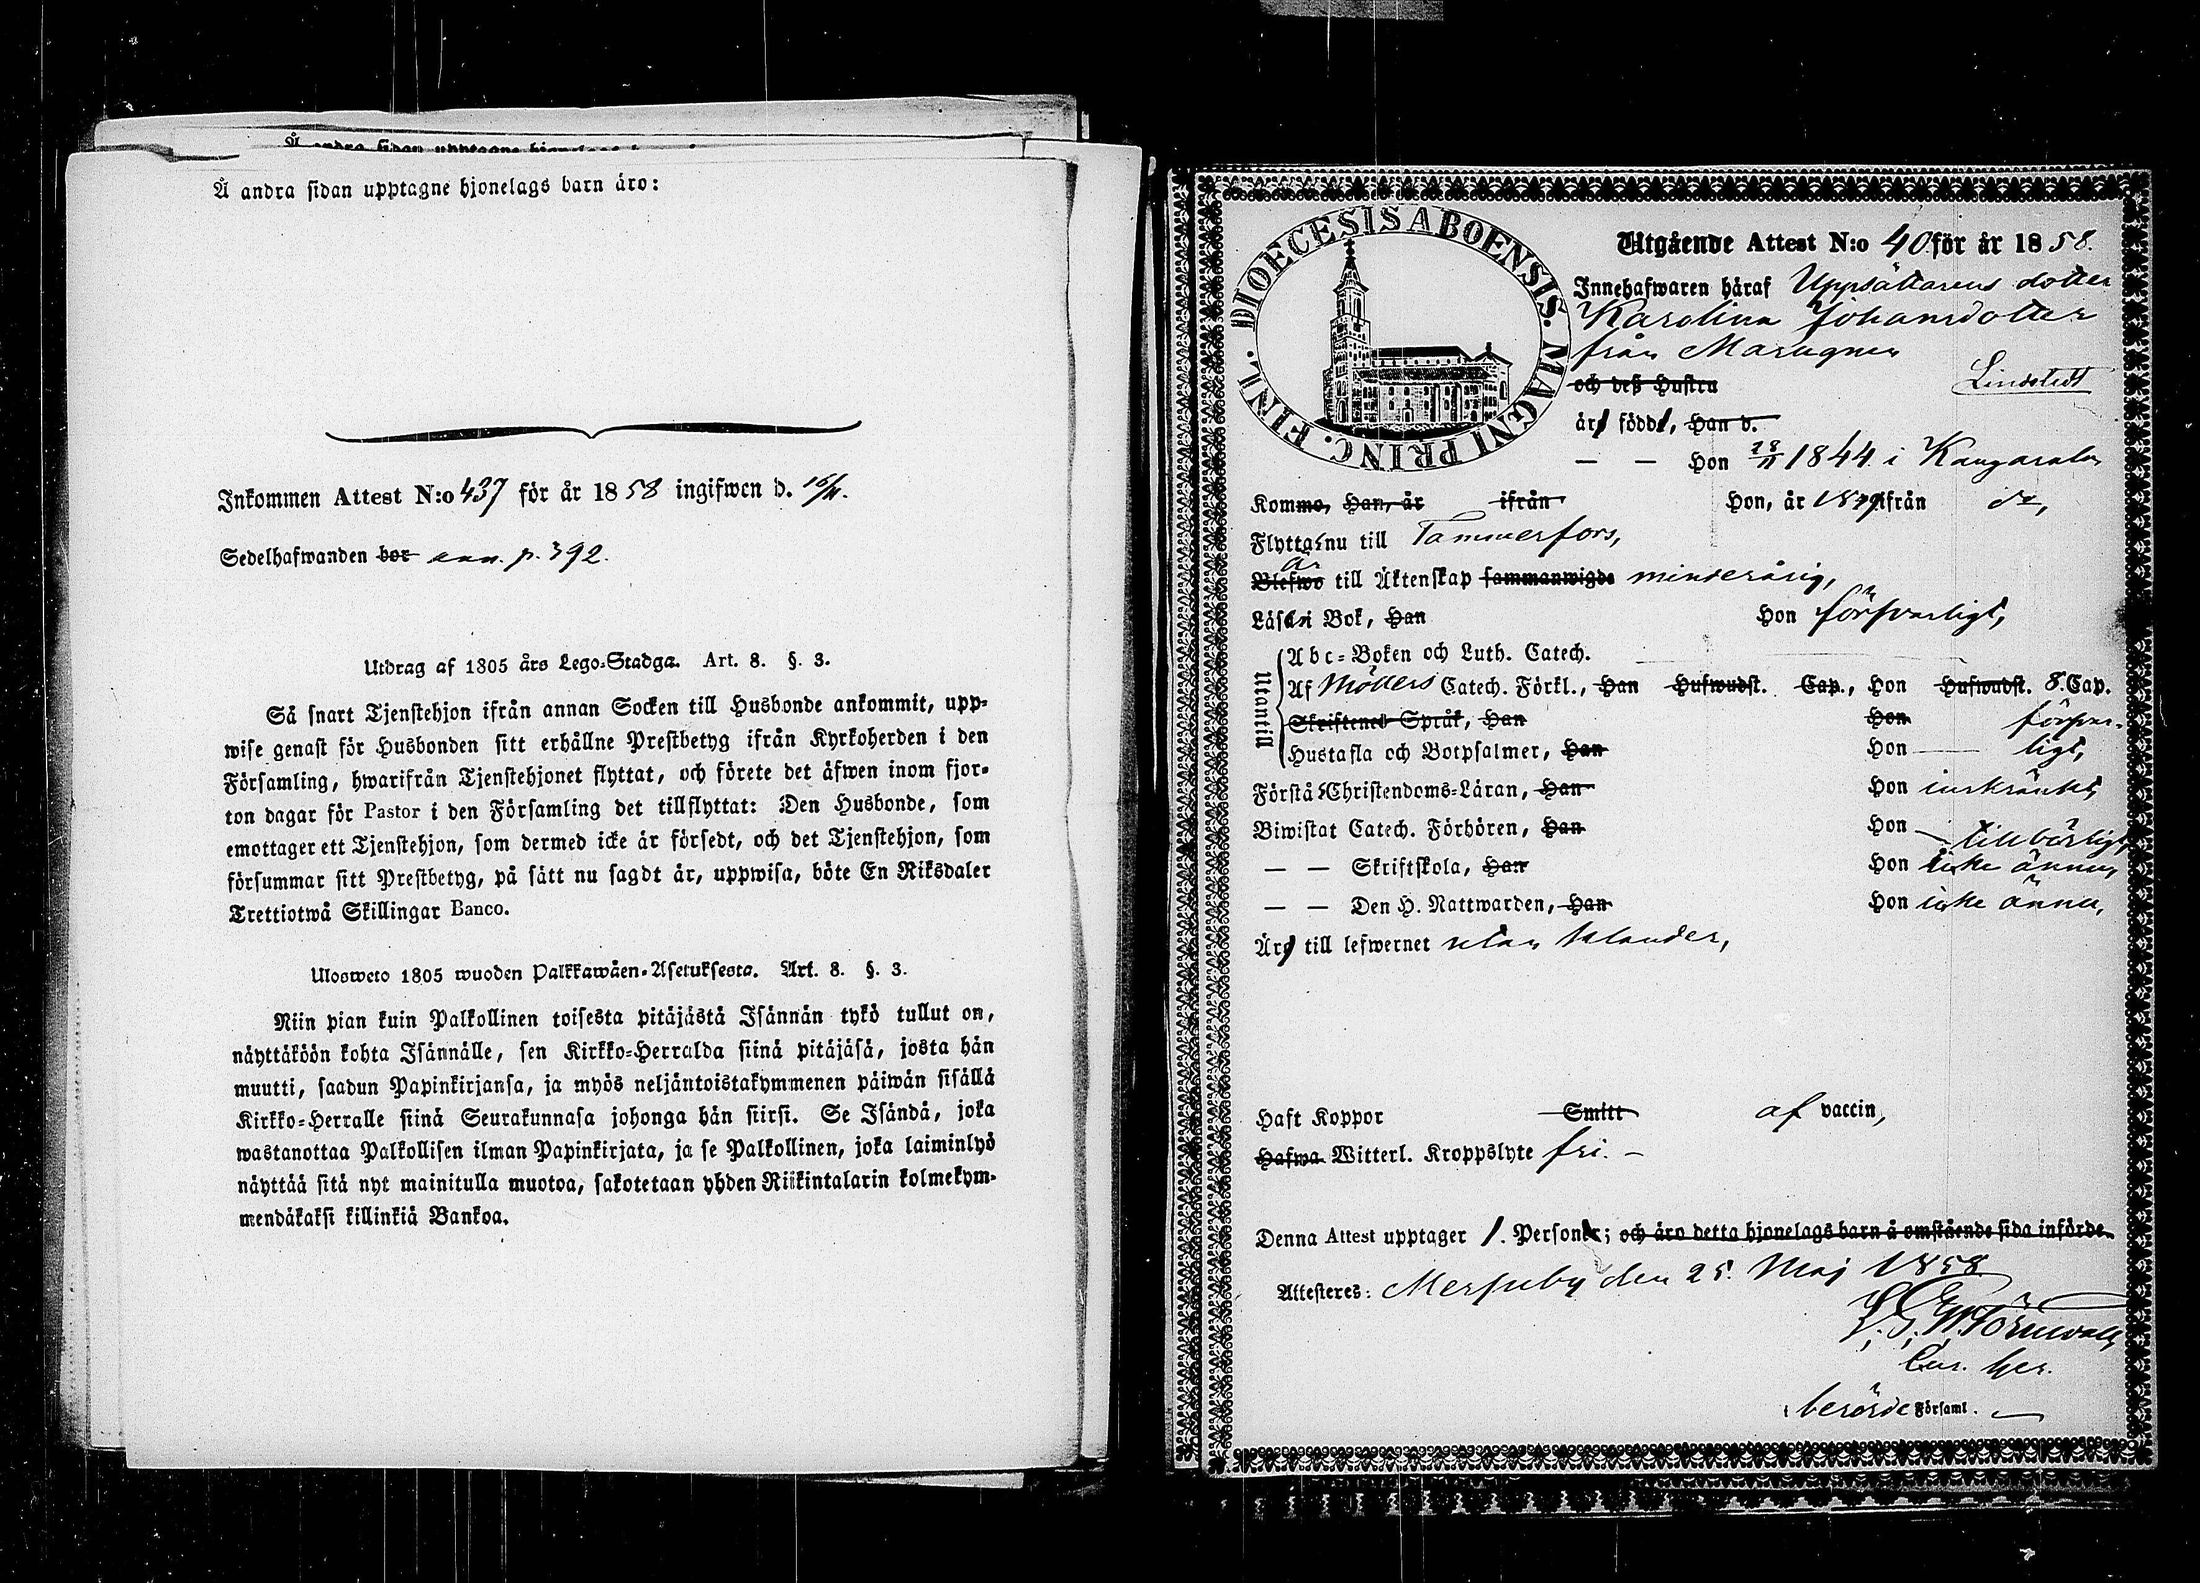 Å andra sidan upptagne hjonelags barn äro:
Inkommen Attest N:o 437 för år 1858 ingifwen d. 16/11.
Sedelhafwanden bor ann. p. 392.
Utdrag af 1805 års Lego-Stadga. Art. 8. §. 3.
Så snart Tjenstehjon ifrån annan Socken till Husbonde ankommit, upp-
wise genast för Husbonden sitt erhållne Prestbetyg ifrån Kyrkoherden i den
Församling, hwarifrån Tjenstehjonet flyttat, och förete det äfwen inom fjor-
ton dagar för Pastor i den Församling det tillflyttat: Den Husbonde, som
emottager ett Tjenstehjon, som dermed icke är försedt, och det Tjenstehjon, som
försummar sitt Prestbetyg, på sätt nu sagdt är, uppwisa, böte En Riksdaler
Trettiotwå Skillingar Banco.
Ulosweto 1805 wuoden Palkkawäen-Asetuksesta. Art. 8. §. 3.
Niin pian kuin Palkollinen toisesta pitäjästä Isännän tykö tullut on,
näyttäköön kohta Isännälle, sen Kirkko-Herralda siinä pitäjäsä, josta hän
muutti, saadun Papinkirjansa, ja myös neljäntoistakymmenen päiwän sisällä
Kirkko-Herralle siinä Seurakunnasa johonga hän siirsi. Se Isändä, joka
wastanottaa Palkollisen ilman Papinkirjata, ja se Palkollinen, joka laiminlyö
näyttää sitä nyt mainitulla muotoa, sakotetaan yhden Riikintalarin kolmekym-
mendäkaksi killinkiä Bankoa.
DIOECESIS ABOENSIS. MAGNI PRINC. FINL.
Utgående Attest N:o 40 för år 1858.
Innehafwaren häraf Uppsättarens dotter
Karolina Johansdotter
från
och deß Hustru Lindstedt
äro födde, Han d.
— — Hon 28/11 1844 i Kangasala
Komne, Han, år ifrån Hon, år ifrån do,
Flyttar nu till Tammerfors,
Är
Blefwo till Äktenskap sammanwigde minderårig,
Läser i Bok, Han Hon försvarligt,
Utantill
Abc-Boken och Luth. Catech.
Af Möllers Catech. Förkl., Han Hufwudst. Cap., Hon Hufwudst. 8. Cap.
Skriftenes Språk, Han Hon försvar-
Hustafla och Botpsalmer, Han Hon — ligt,
Förstår Christendoms-Läran, Han Hon inskränkt,
Biwistat Catech. Förhören, Han Hon — tillbörligt,
— — Skriftskola, Han Hon icke ännu,
— — Den H. Nattwarden, Han Hon icke ännu,
Äro till lefwernet utan klander,
Haft Koppor Smitt af vaccin,
Hafwa Witterl. Kroppslyte fri. —
Denna Attest upptager 1. Person; och äro detta hjonelags barn å omstående sida införde.
Attesteres: den 25. Maj 1858
Törnwall,
berörde Församl. —